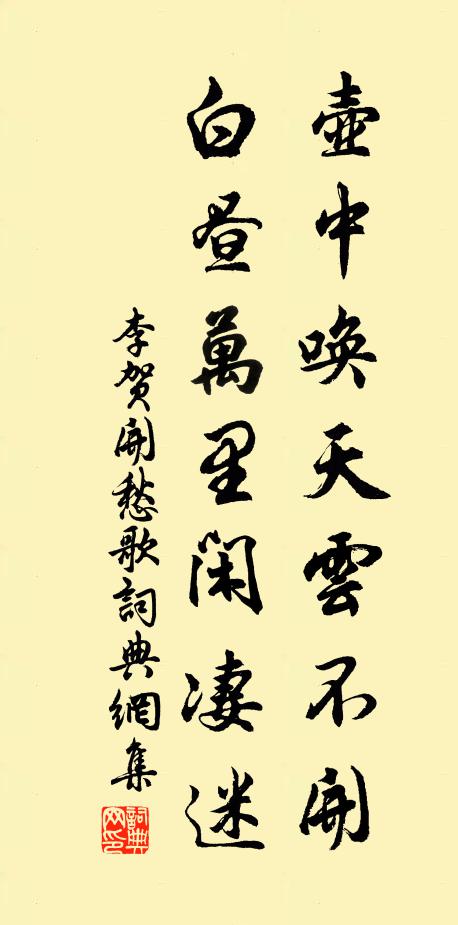 壺中喚天雲不開
白晝萬里閑凄迷
李賀開愁歌詞典網集
詞典网印